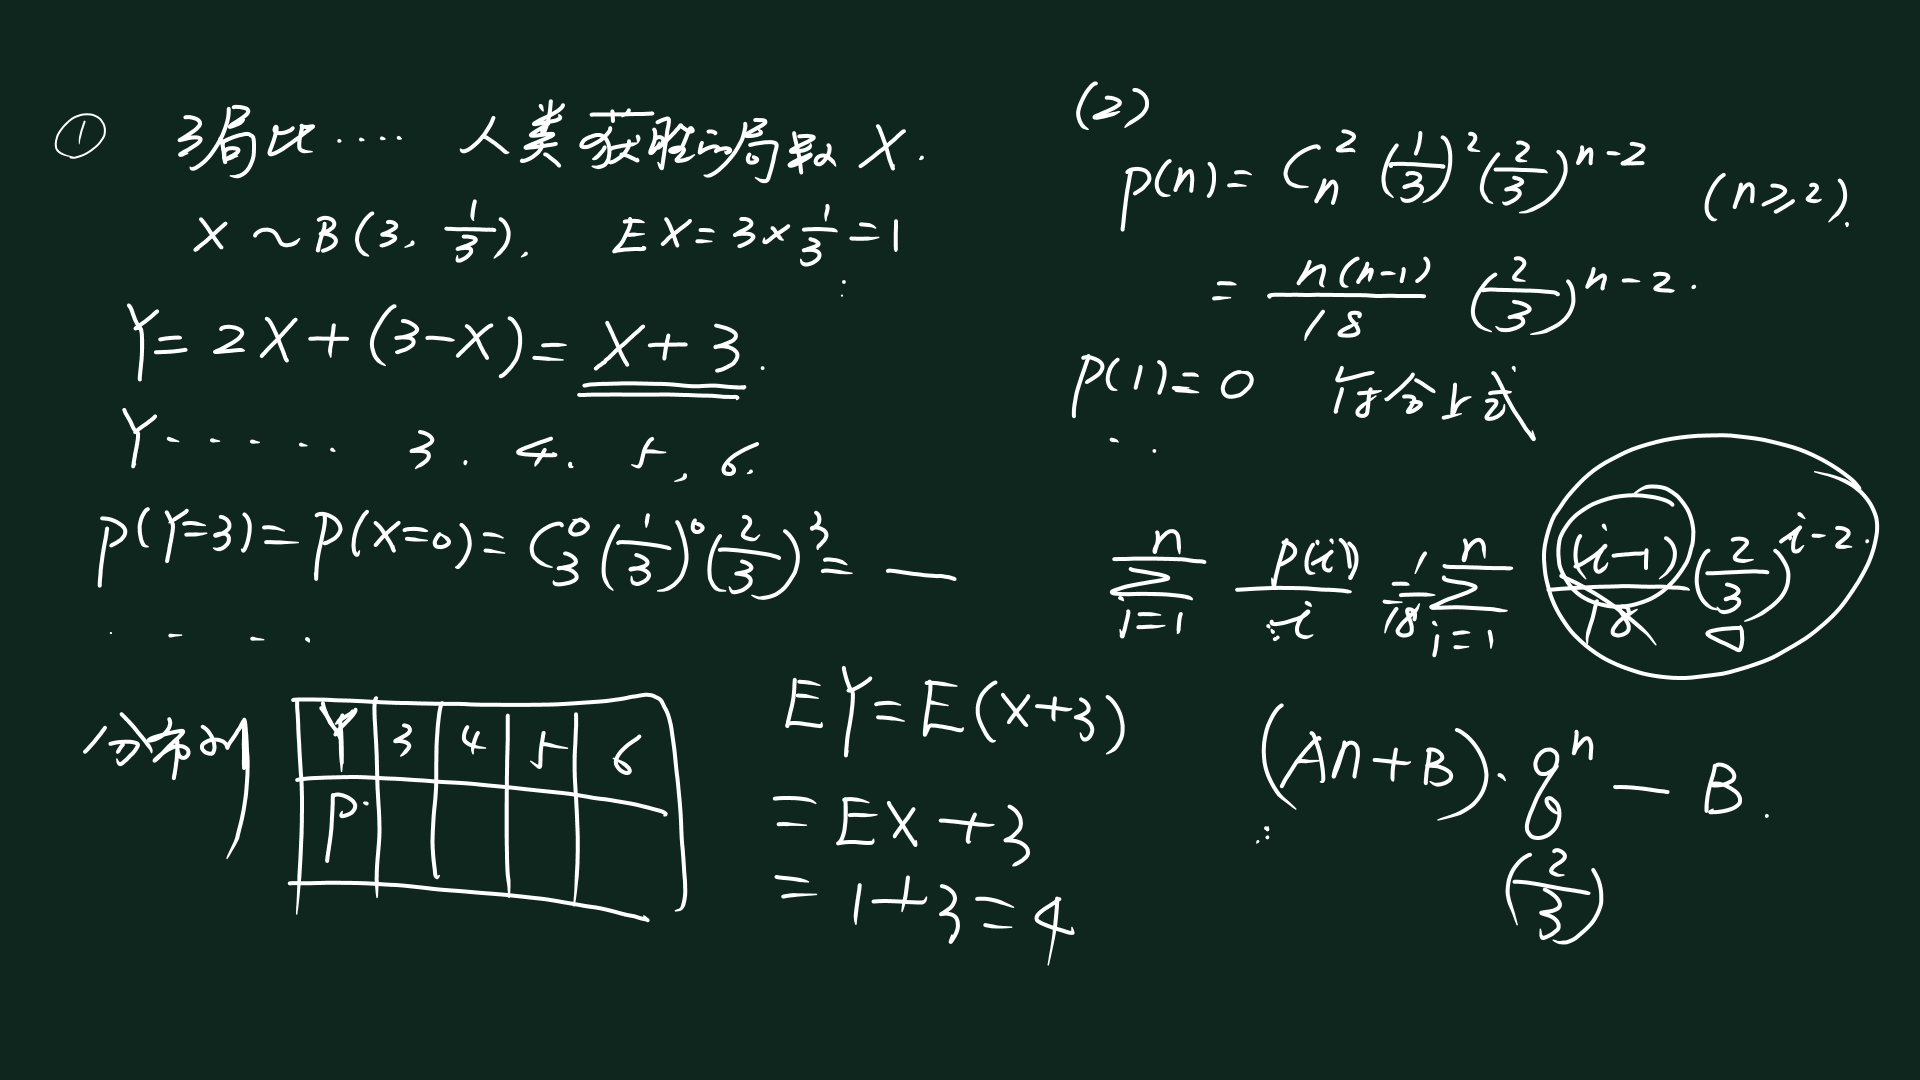 ① 3局比…… 人类获胜的局数 X.
X ~ B(3, 1/3). EX = 3 × 1/3 = 1
Y = 2X + (3-X) = X + 3.
Y ...... 3. 4. 5, 6.
P(Y=3) = P(X=0) = C₃⁰ (1/3)⁰ (2/3)³ = —
....
分布列
Y 3 4 5 6
P
EY = E(X+3)
= EX + 3
= 1+3 = 4
(2)
P(n) = Cₙ² (1/3)² (2/3)ⁿ⁻² (n≥2).
= n(n-1)/18 (2/3)ⁿ⁻².
P(1) = 0 符合上式
n∑i=1 P(i)/i = 1/18 n∑i=1 (i-1)/18 (2/3)ⁱ⁻².
(An+B)·qⁿ — B.
(2/3)